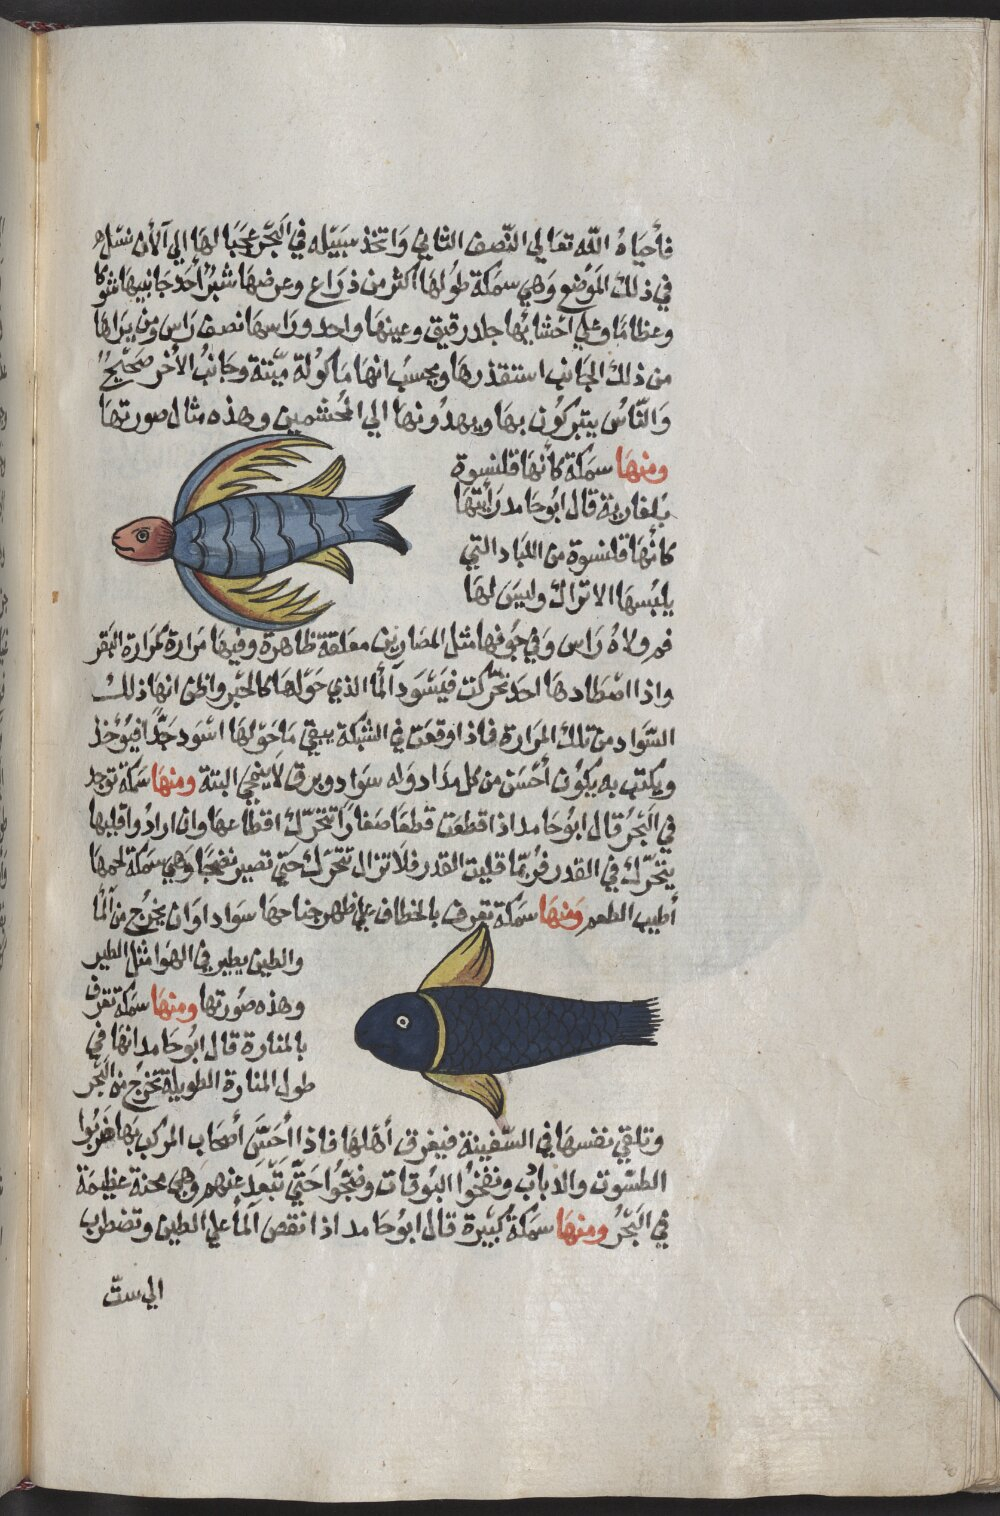 فأحياهُ الله تعالي النّصف الثاني وَاتخذ سَبيله في البَحر عجَبًا لهَا الي الآن نسْلها
في ذلكَ المَوضع وَهي سَمكة طولهَا أكثر من ذرَاع وعرضهَا شبرٌ أحَد جَانبيهَا شوكا
وعظامًا وعلي احْشايُها جلد رقيق وعينهَا واحد وراسهَا نصف رَاس ومن يرَاهَا
من ذلكَ الجَانب استقذرهَا ويحسَب انهَا مَاكولة ميّتة وجَانبُ الأخر صَحيحٌ
وَالنّاسُ يتبركوُن بهَا ويهدُونهَا الي المحُتشمين وهذه مثال صورتهَا
ومنهَا سَمكة كأنهَا قلنسوة
بلغارية قال ابوُ حَامد رَأيتهَا
كانهَا قلنسوة من اللبَاد التي
يلبسهَا الاتراكُ وليسَ لهَا
فم ولاهُ رَاس وَفي جَوفهَا مثل المصَارين معَلقة ظاهرة وفيهَا مَرارة كمَرارة البَقر
واذا اصْطادهَا احَد تحَركت فيَسْوَد آلمَا الذي حَوْلهَا كالحِبْر واظن انهَا ذلكُ
السّوَاد من تلكَ المرَارة فاذا وقعَت في الشبكة يبقي مَا حَوْلهَا اسْوَد جدًّا فيُؤخذ
ويكتبُ به يكوُن أحْسَن من كل مدَاد وَله سوَاد وبرق لا ينمحي البتة ومنهَا سَمكة توجد
في البَحرُ قال ابوُ حَامد اذا قطعَت قطعًا صغارًا تتحَرّك اقطاعهَا وان ارَادُوا قليهَا
يتحَرّك في القدر فرُبّمَا قلبت القدر فلا تزال تتحَرّك حَتي تصير نضيجًا وَهي سَمكة لحمهَا
أطيب الطعم ومنهَا سَمكة تعرف بالخطاف علي ظهر جناحهَا سوَاد اوَان يخرُج من المَا
والطين يطير في الهَوا مثل الطير
وهذه صُورتهَا ومنهَا سَمكة تعرف
بالمنارة قال ابوُ حَامد انهَا في
طول المنارة الطويلة تخرُج من البَحر
وتلقي نفسهَا في السّفينة فيغرق أهْلهَا فاذا أحَسّ أصحَاب المركب بهَا ضربُوا
الطسُوت والدبابُ ونفخوُا البُوقات وضجّوُا حَتّي تبّعَد عنهم وَهي محنة عظيمة
في البَحرُ ومنهَا سَمكة كبيرة قال ابوُ حَامد اذا نقص آلمَا علي الطين وتضطرب
الي ستّ